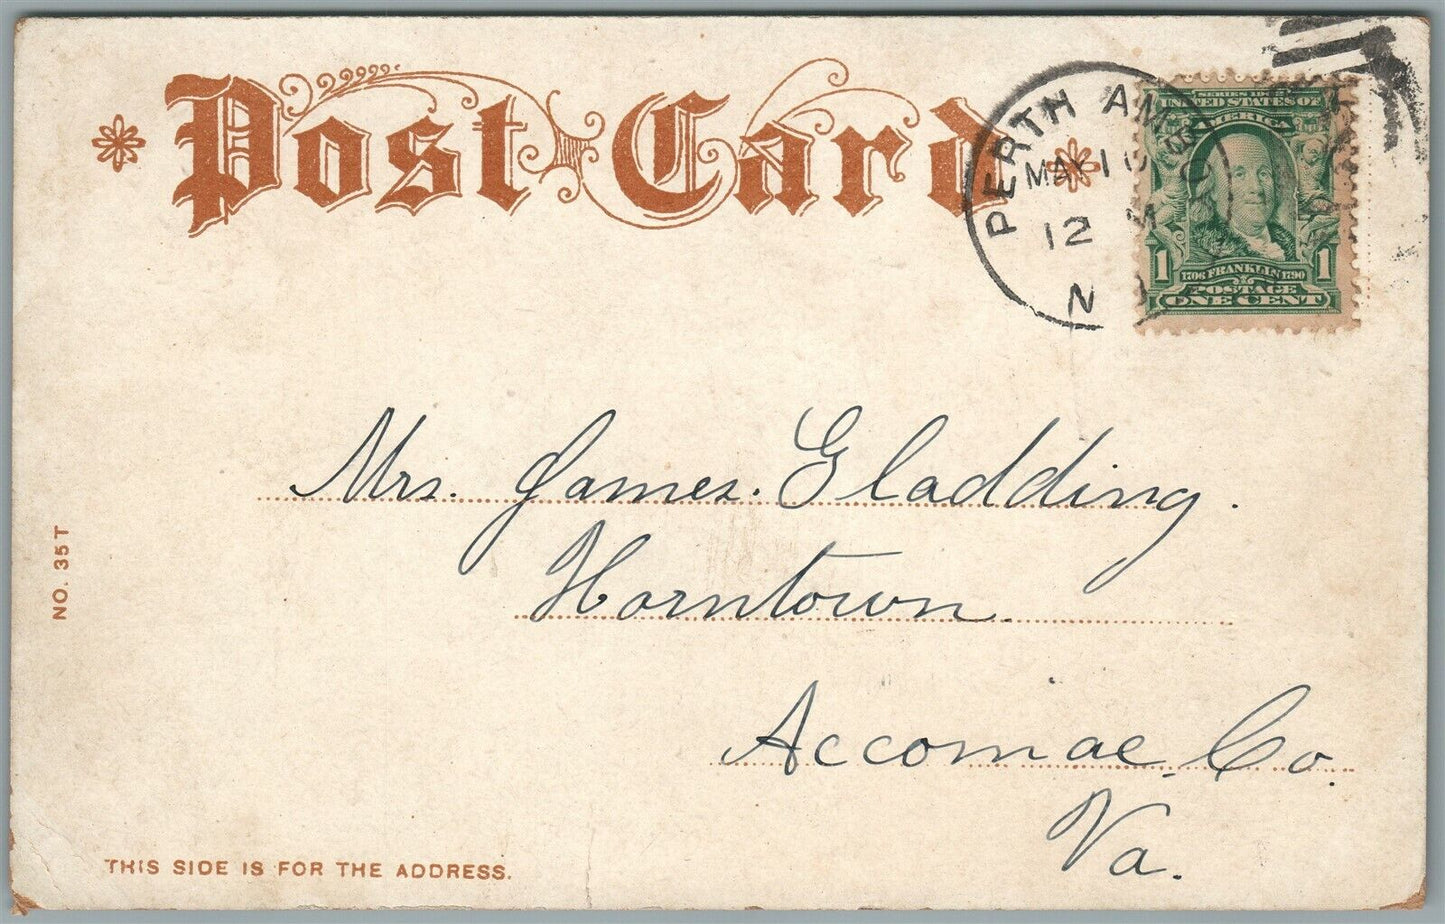 Post Card
PERTH AM
MAY 10
12 M
N
SERIES 1902
UNITED STATES OF
AMERICA
1706 FRANKLIN 1790
1 1
POSTAGE
ONE CENT
Mrs. James. Gladding.
Horntown.
Accomac. Co.
Va.
NO. 35T
THIS SIDE IS FOR THE ADDRESS.